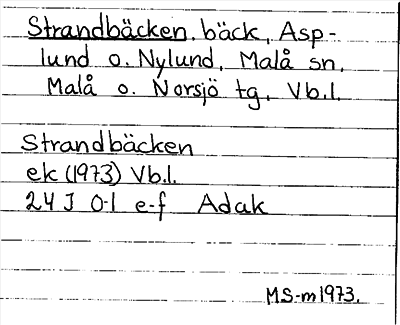 Strandbäcken, bäck, Asp-
lund o. Nylund, Malå sn,
Malå o. Norsjö tg, Vb.l.
Strandbäcken
ek (1973) Vb.l.
24 J 0-1 e-f Adak
MS-m1973.